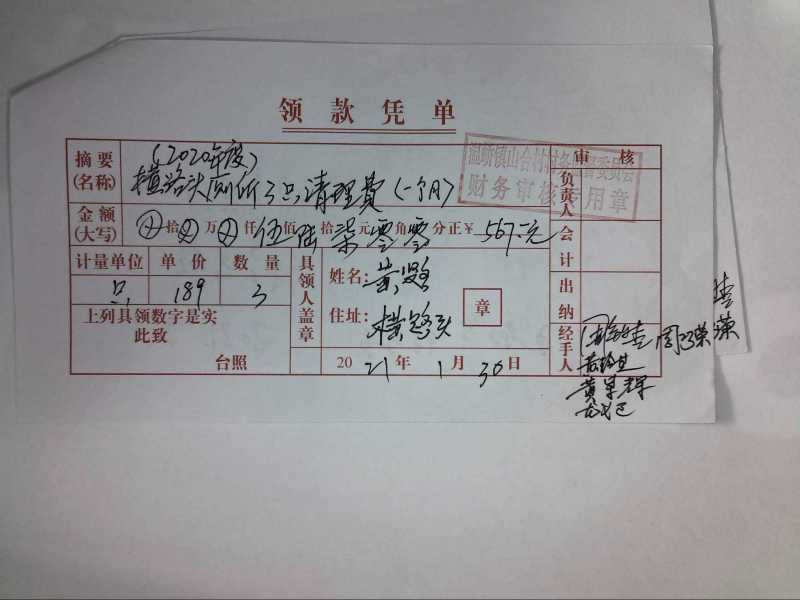 领款凭单
摘要(名称) (2020年度)
横路头厕所3只清理费(一个月)
审核
温峤镇山合村村务监督委员会
财务审核专用章
金额(大写) 拾 万 仟伍佰陆拾柒元零角零分正¥567.元
计量单位 单价 数量
只 189 3
上列具领数字是实
此致
台照
具领人盖章
姓名:黄
住址:横路头
章
2021年1月30日
负责人
会计
出纳
经手人
周 荣
黄